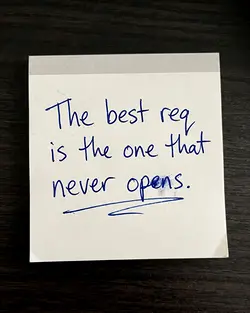 The best req
is the one that
never opens.